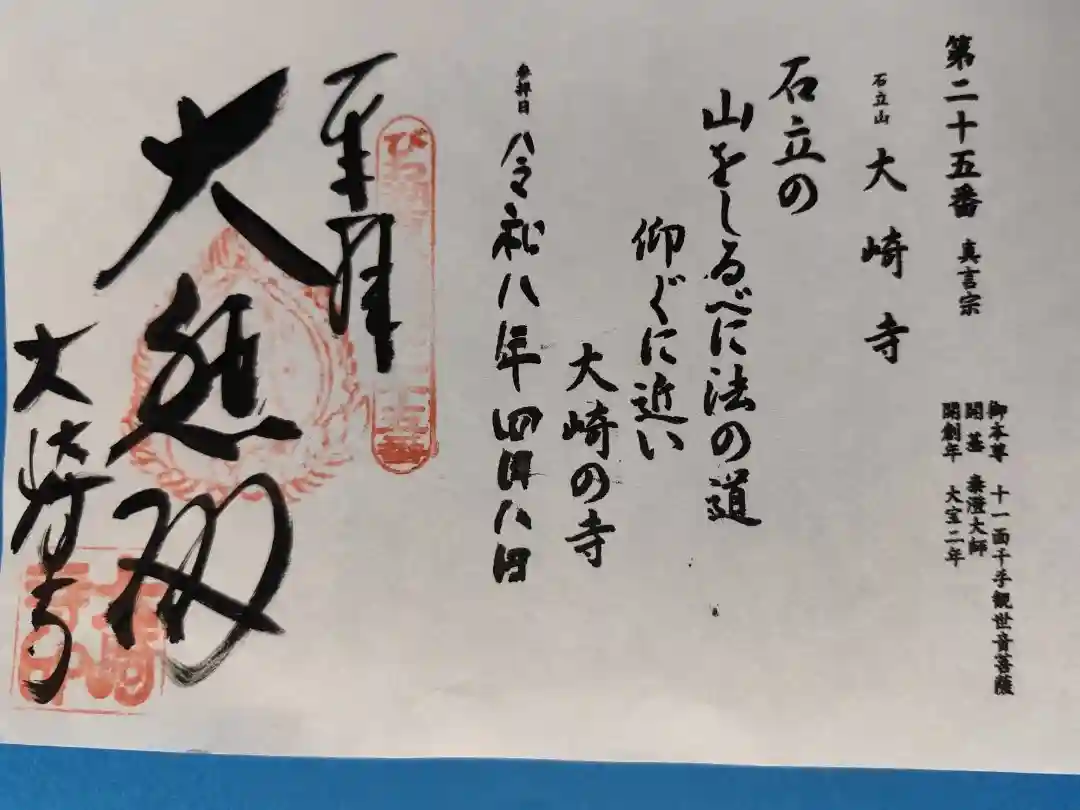 第二十五番 真言宗
御本尊 十一面千手観世音菩薩
開基 泰澄大師
開創年 大宝二年
石立山 大崎寺
石立の
山をしるべに法の道
仰ぐに近い
大崎の寺
参拝日 令和八年四月八日
奉拝
大悲閣
大崎寺